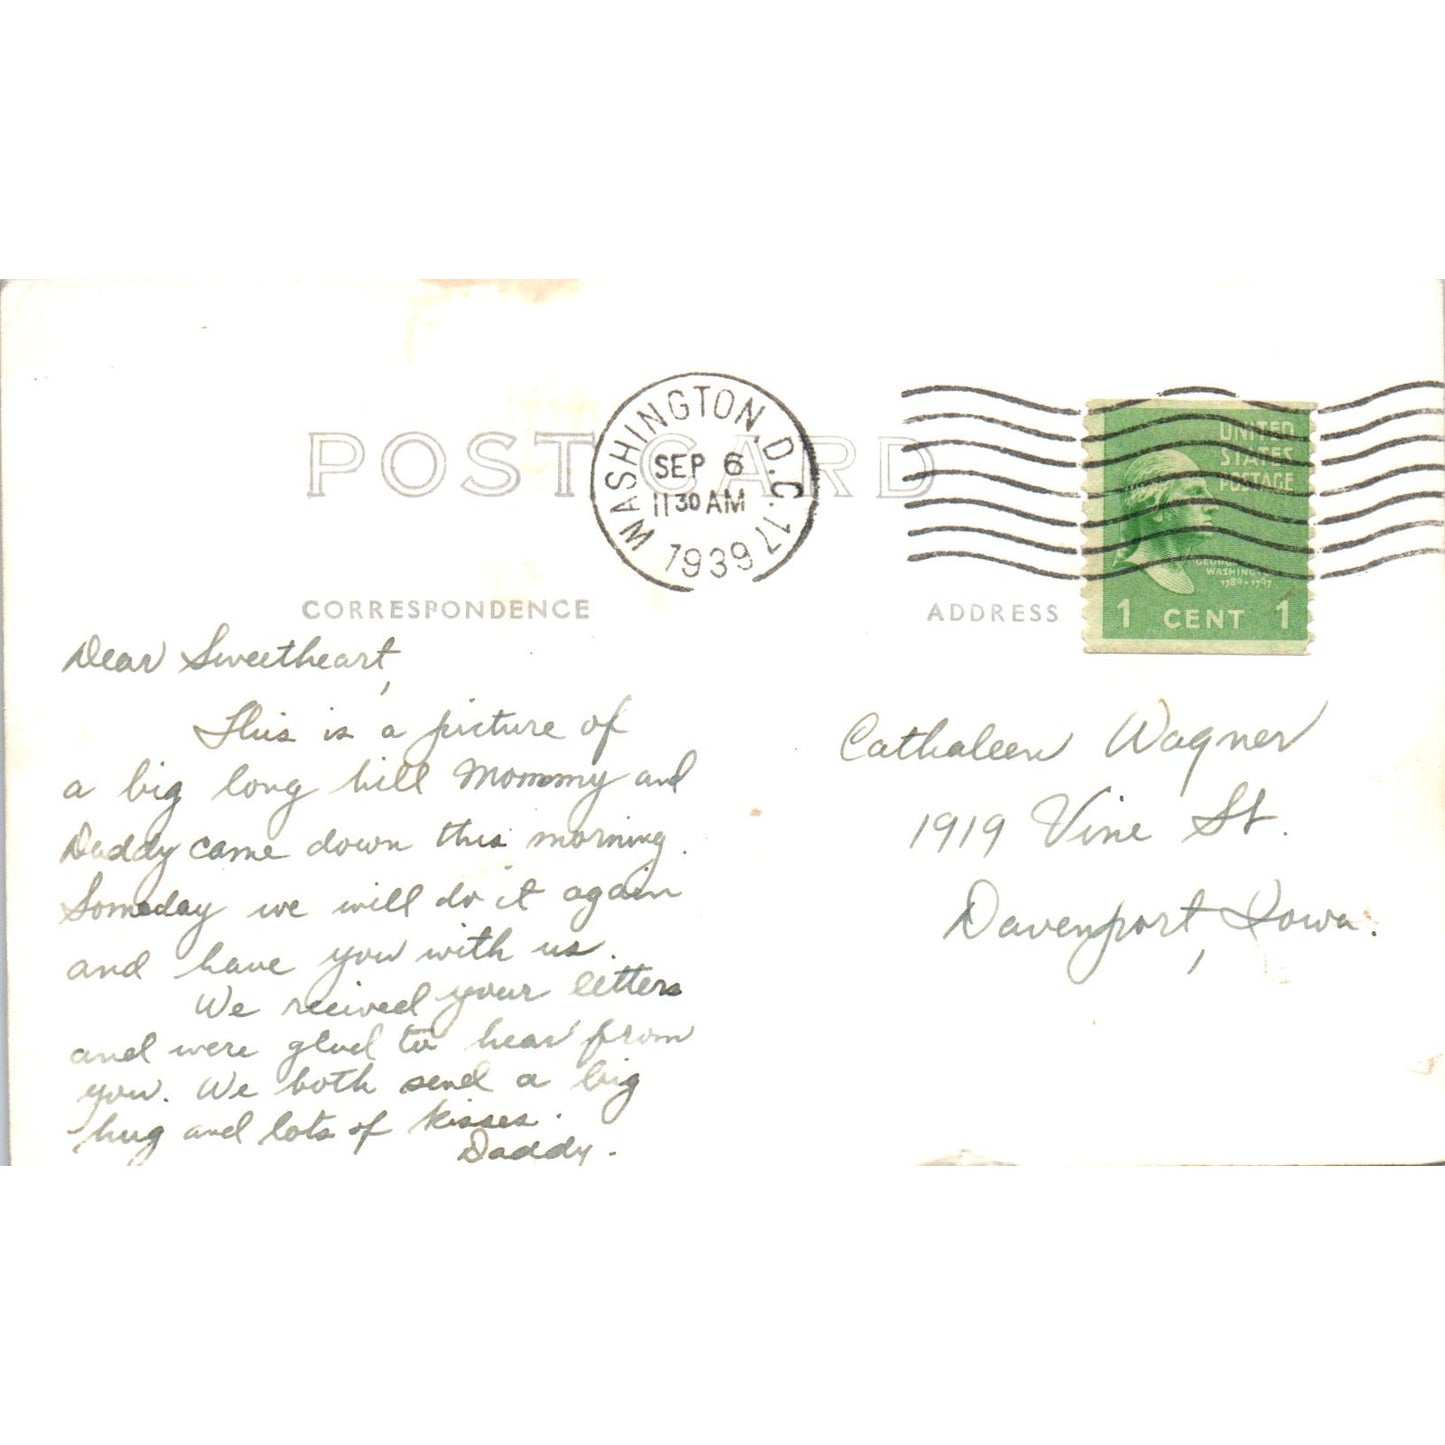 POST CARD
WASHINGTON, D.C. 17
SEP 6
11 30 AM
1939
UNITED
STATES
POSTAGE
GEORGE
WASHINGTON
1789-1797
1 CENT 1
CORRESPONDENCE
ADDRESS
Dear Sweetheart,
This is a picture of
a big long hill Mommy and
Daddy came down this morning.
Someday we will do it again
and have you with us.
We recived your letters
and were glad to hear from
you. We both send a big
hug and lots of kisses.
Daddy.
Cathaleen Wagner
1919 Vine St.
Davenport, Iowa.